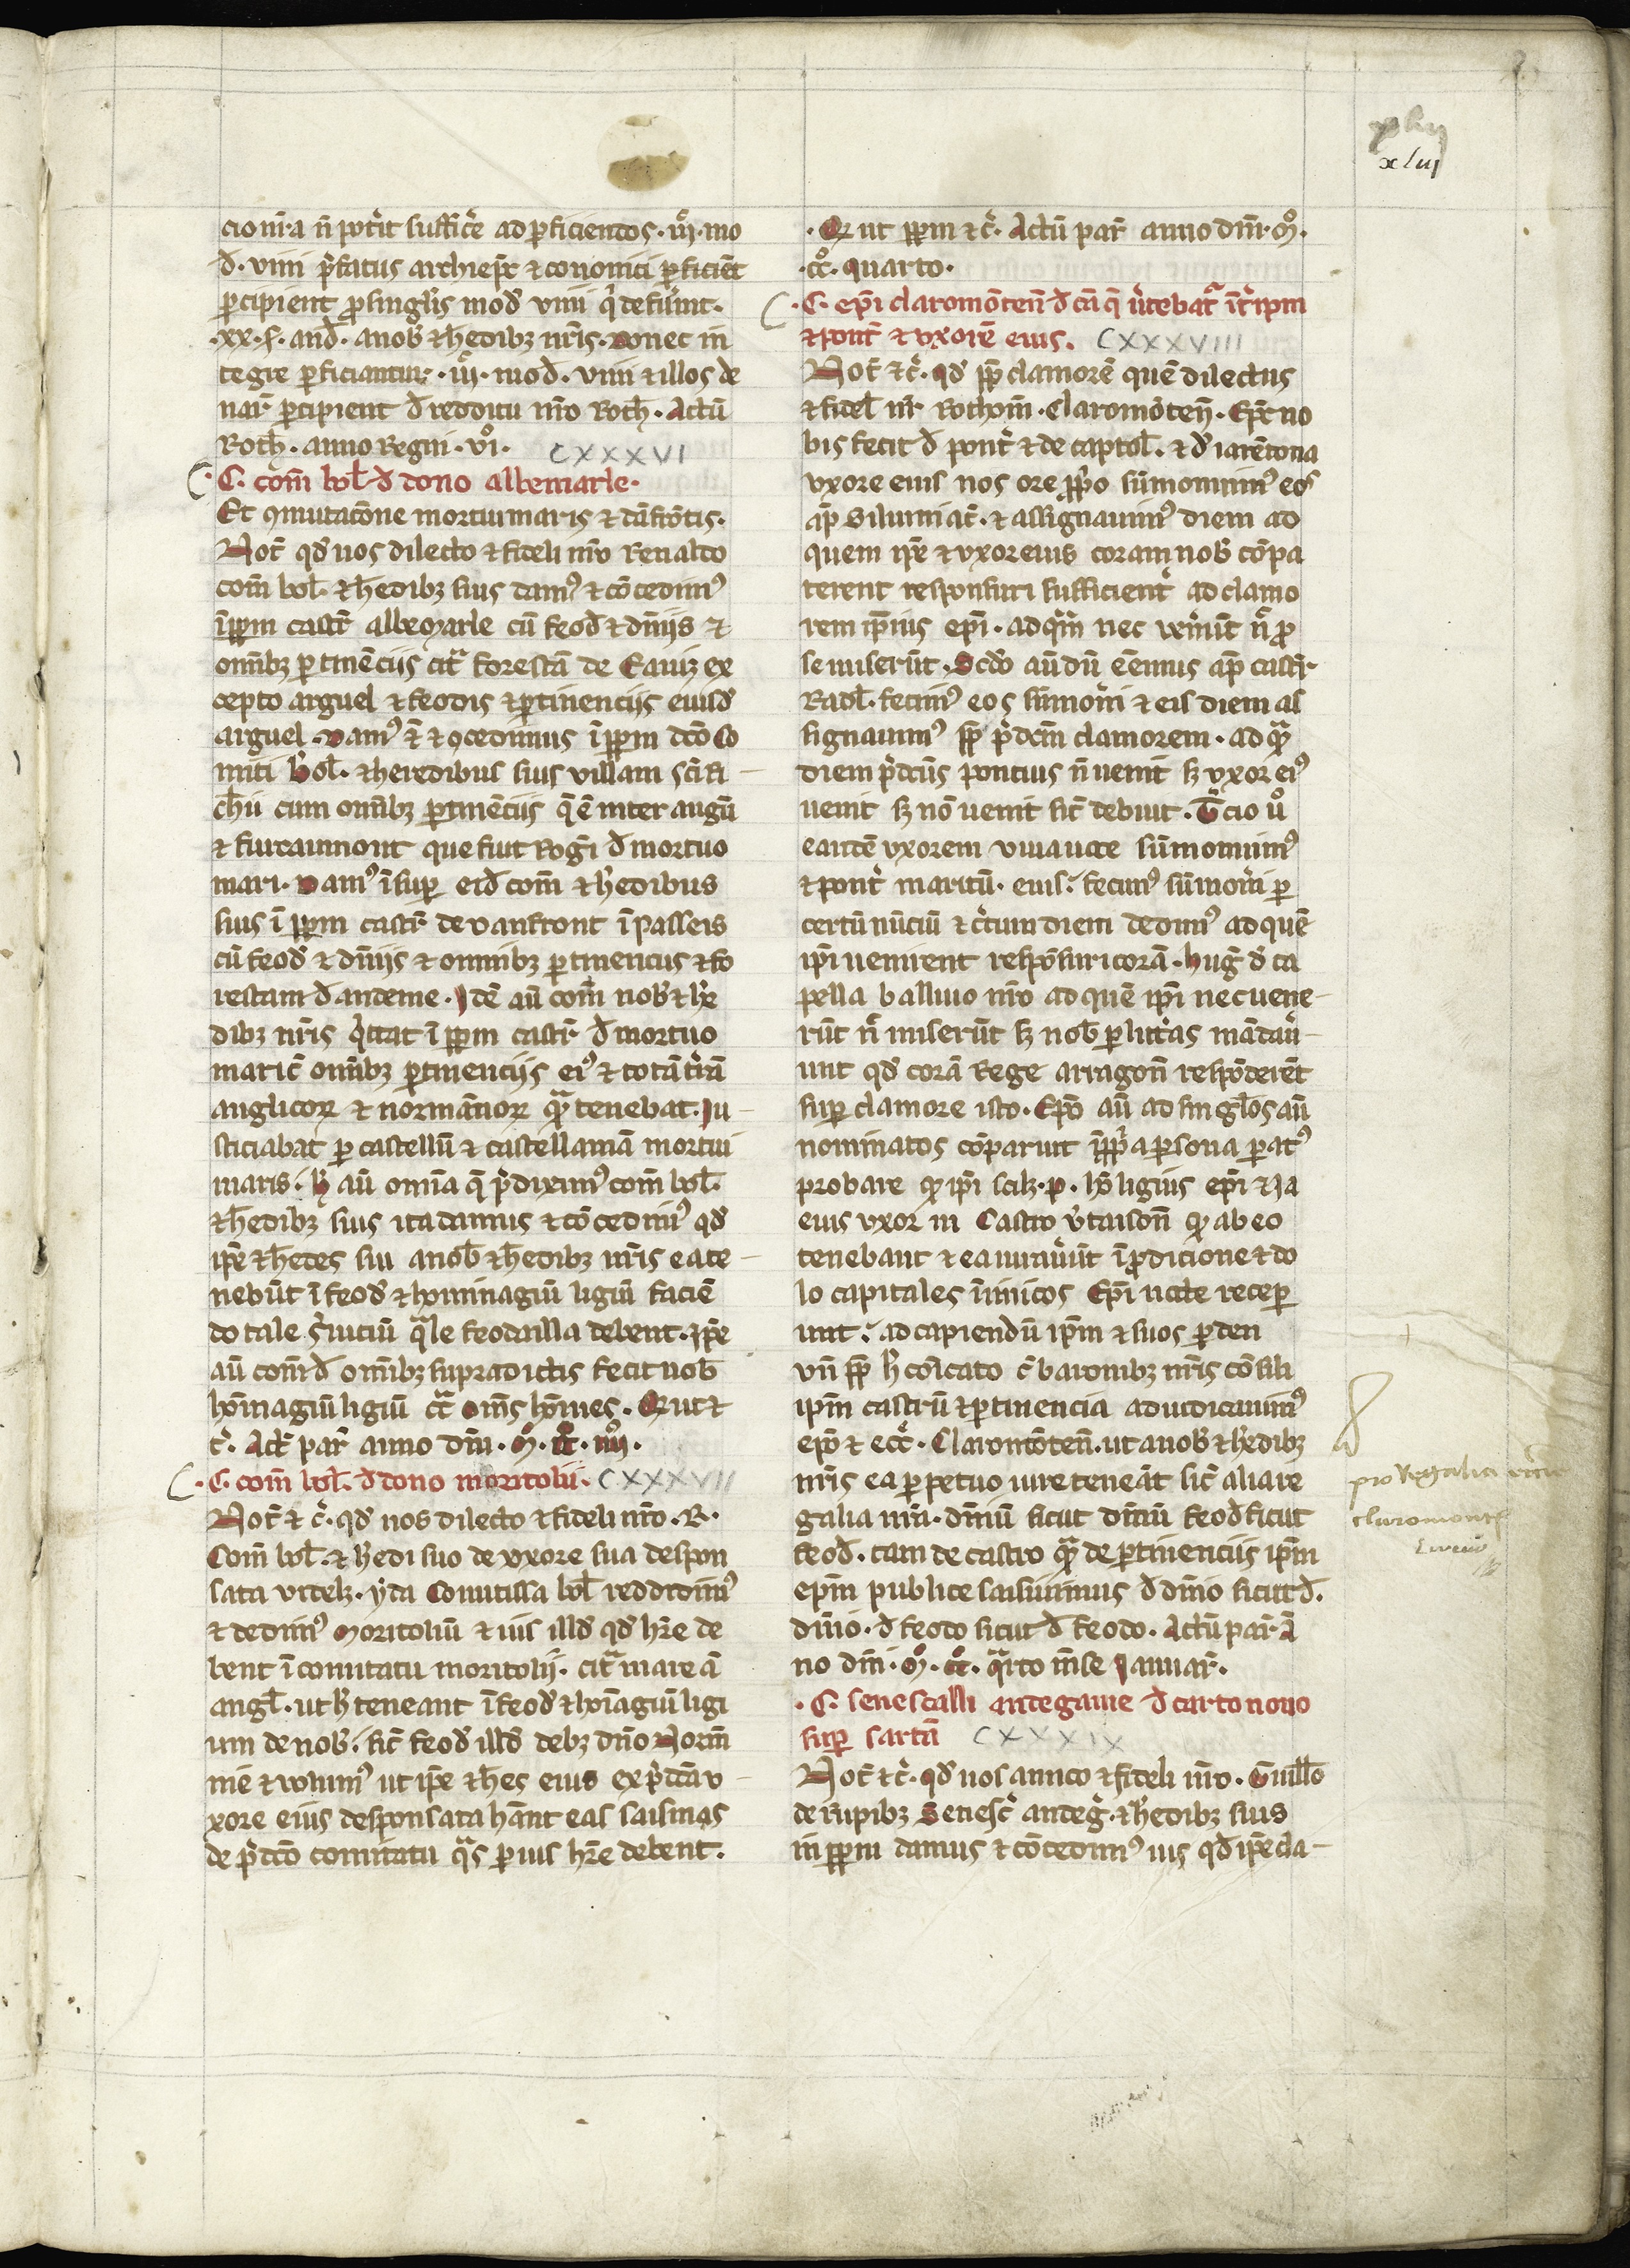 xliij
xliij
cio nr̄a n̄ pot'it suffic'e ad ꝑficiendos .iiijor. mo
đ. vini p̄fatus archiep̄c ⁊ cononici ꝑficiēt
ꝑcipient ꝓ singl'is mođ vini q̇ defu'int.
.xx. s. anđ. a nob̄ ⁊ h'edibꝫ nr̄is. Donec in
tegre ꝑficiantur .iiijor. mođ. vini ⁊ illos de
nar̄ ꝑcipient đ redditu nr̄o Roth̄. Actū
Roth̄. anno Regni. vjo.
CXXXVI
.C. com̄ bol̄ đ dono albemarle.
Et ꝯmutacōne mortui maris ⁊ dāfrōtis.
Not̄ qđ nos dilecto ⁊ fideli nr̄o Renaldo
com̄ bol̄. ⁊ h'edibꝫ suis damꝰ ⁊ cōcedimꝰ
ī ꝑpm castr̄ albemarle cū feođ ⁊ dn̄iis ⁊
om̄ibꝫ ꝑtinēciis cit̄ forestā de Eauiz ex
cepto arguel ⁊ feodis ⁊ ꝑtinenciis eiusđ
arguel. Damꝰ ⁊̄ ⁊ ꝯcedimus ī ꝑpm dc̄o Co
miti Bol̄. ⁊ heredibus suis villam sc̄i Ri
ch'ii cum om̄ibꝫ ꝑtinēciis q̄ ē inter augū
⁊ fiircaimont que fuit Roḡi đ mortuo
mari. Damꝰ īsuꝑ eiđ com̄ ⁊ h'edibus
suis ī ꝑpm castr̄ de Danfront ī passeis
cū feođ ⁊ dn̄iis ⁊ omnibꝫ ꝑtinenciis ⁊ fo
restam đ andeine. Idē aū com̄ nob̄ ⁊ h'e
dibꝫ nr̄is q̇ttat ī ꝑpm castr̄ đ mortuo
mari c̄ om̄ibꝫ ꝑtinenciis eiꝰ ⁊ totā t'rā
anglicoꝝ ⁊ normānoꝝ quā tenebat. Ju
sticiabat ꝑ castellū ⁊ castellaniā mortui
maris. h̄ aū omīa q̄ p̄diximꝰ com̄ bol̄.
⁊ h'edibꝫ suis ita damus ⁊ cōcedimꝰ qđ
ip̄e ⁊ h'edes sui a nob̄ ⁊ h'edibꝫ nr̄is ea te
nebūt ī feođ ⁊ hominagiū ligiū faciē
do tale s'uiciū quale feoda illa debent. Ip̄e
aū com̄ đ om̄ibꝫ supradictis fecit nob̄
hōinagiū ligiū ct̄ om̄s hōines. Q ut ⁊
c̄. Act̄ par̄ anno dn̄i. M. cc. iiijo.
.C. com̄ bol̄. đ dono moritolii. CXXXVII
Not̄ ⁊ c̄. qđ nos dilecto ⁊ fideli nr̄o. R.
Com̄ bol̄. ⁊ h'edi suo de uxore sua despon
sata videlꝫ. yda Comitissa bol̄ reddidimꝰ
⁊ dedimꝰ Moritoliū ⁊ ius illđ qđ hr̄e de
bent ī comitatu moritolij. cit̄ mare ā
angl̄. ut h̄ teneant ī feođ ⁊ hōinagiū ligi
um de nob̄. sic̄ feođ illđ debꝫ dn̄o Norm̄
nīe ⁊ volumꝰ ut ip̄e ⁊ h'es eius ex p̄dc̄a v
xore eius desponsata hānt eas saisinas
de p̄dc̄o comitatu quas ꝑ ius hr̄e debent.
.Q ut ꝑpm ⁊ c̄. Actū par̄ anno dn̄i. Mo.
.cco. quarto.
.C. ep̄i claromōten̄ đ cā q̄ v'tebat' īt' ip̄m
⁊ pont̄ ⁊ vxorē eius. CXXXVIII
Not̄ ⁊ c̄. qđ suꝑ clamorē quē dilectus
⁊ fidel̄ nr̄ Robtus. Claromōten̄. Ep̄c no
bis fecit đ pont̄ ⁊ de captol̄. ⁊ đ iarētona
vxore eius nos ore ꝓp̄o sūmonuimꝰ eos
ap̄ Siluiniac̄. ⁊ assignauimꝰ diem ad
quem ip̄e ⁊ vxor eius coram nob̄ cōpa
rerent responsuri sufficient' ad clamo
rem ip̄ius ep̄i. ad quem nec ven'ūt n̄ ꝓ
se miserūt. Scđo aū dū eēmus ap̄ castr̄
Radl̄. fecimꝰ eos sūmon'i ⁊ eis diem as
signauimꝰ suꝑ p̄dcm̄ clamorem. ad quem
diem p̄dcūs poncius n̄ venit sꝫ vxor eiꝰ
venit sꝫ nō venit sic̄ debuit. T'cio vo
eandē vxorem viua uoce sūmonuimꝰ
⁊ pont̄ maritū. eius. fecimꝰ sūmon'i ꝑ
certū nūciū ⁊ c'tum diem dedimꝰ ad quē
ip̄i venirent respōsuri corā. huḡ đ ca
pella balliuo nr̄o ad quē ip̄i nec uene
rūt n̄ miserūt sꝫ nob̄ ꝑ litt'as mādau'
unt qđ corā Rege arragon̄ respōderēt
suꝑ clamore isto. Ep̄o aū ad singl̄os aū
nominatos cōparuit ī ꝓp'a ꝑsona ꝑatꝰ
probare qđ ip̄i scilꝫ. P. hō ligius ep̄i ⁊ Ja
eius vxor in Castro v'taison̄ qđ ab eo
tenebant ⁊ ea iurau'ūt ī ꝓdicione ⁊ do
lo capitales inimicos Ep̄i valde receper
unt. ad capiendū ip̄m ⁊ suos ꝑ den
vn̄ suꝑ h̄ cōicato c̄ baronibꝫ nr̄is cōsili
ip̄m castrū ⁊ ꝑtinencia adiudicauimꝰ
ep̄o ⁊ ecc̄. Claromōten̄. ut a nob̄ ⁊ h'edibꝫ
nr̄is ea ꝑpetuo iure teneāt sic̄ alia re
galia nr̄a. dn̄iū sicut dn̄iū feođ sicut
feođ. tam de castro quam de ꝑtinenciis ip̄m
ep̄m publice saisiuimus đ dn̄io sicut đ.
dn̄io. đ feodo sicut đ feodo. Actū par̄ ā
no dn̄i. Mo. cco. quarto m̄se Januar̄.
.C. senescalli andegauie đ carto nouo
suꝑ sartā CXXXIX
Not̄ ⁊ c̄. qđ nos amico ⁊ fideli nr̄o. Guill̄o
de rupibꝫ Senesc̄ andeḡ. ⁊ h'edibꝫ suis
in ꝑpm damus ⁊ cōcedimꝰ ius qđ ip̄e cla
pro Regalia
claromont̄